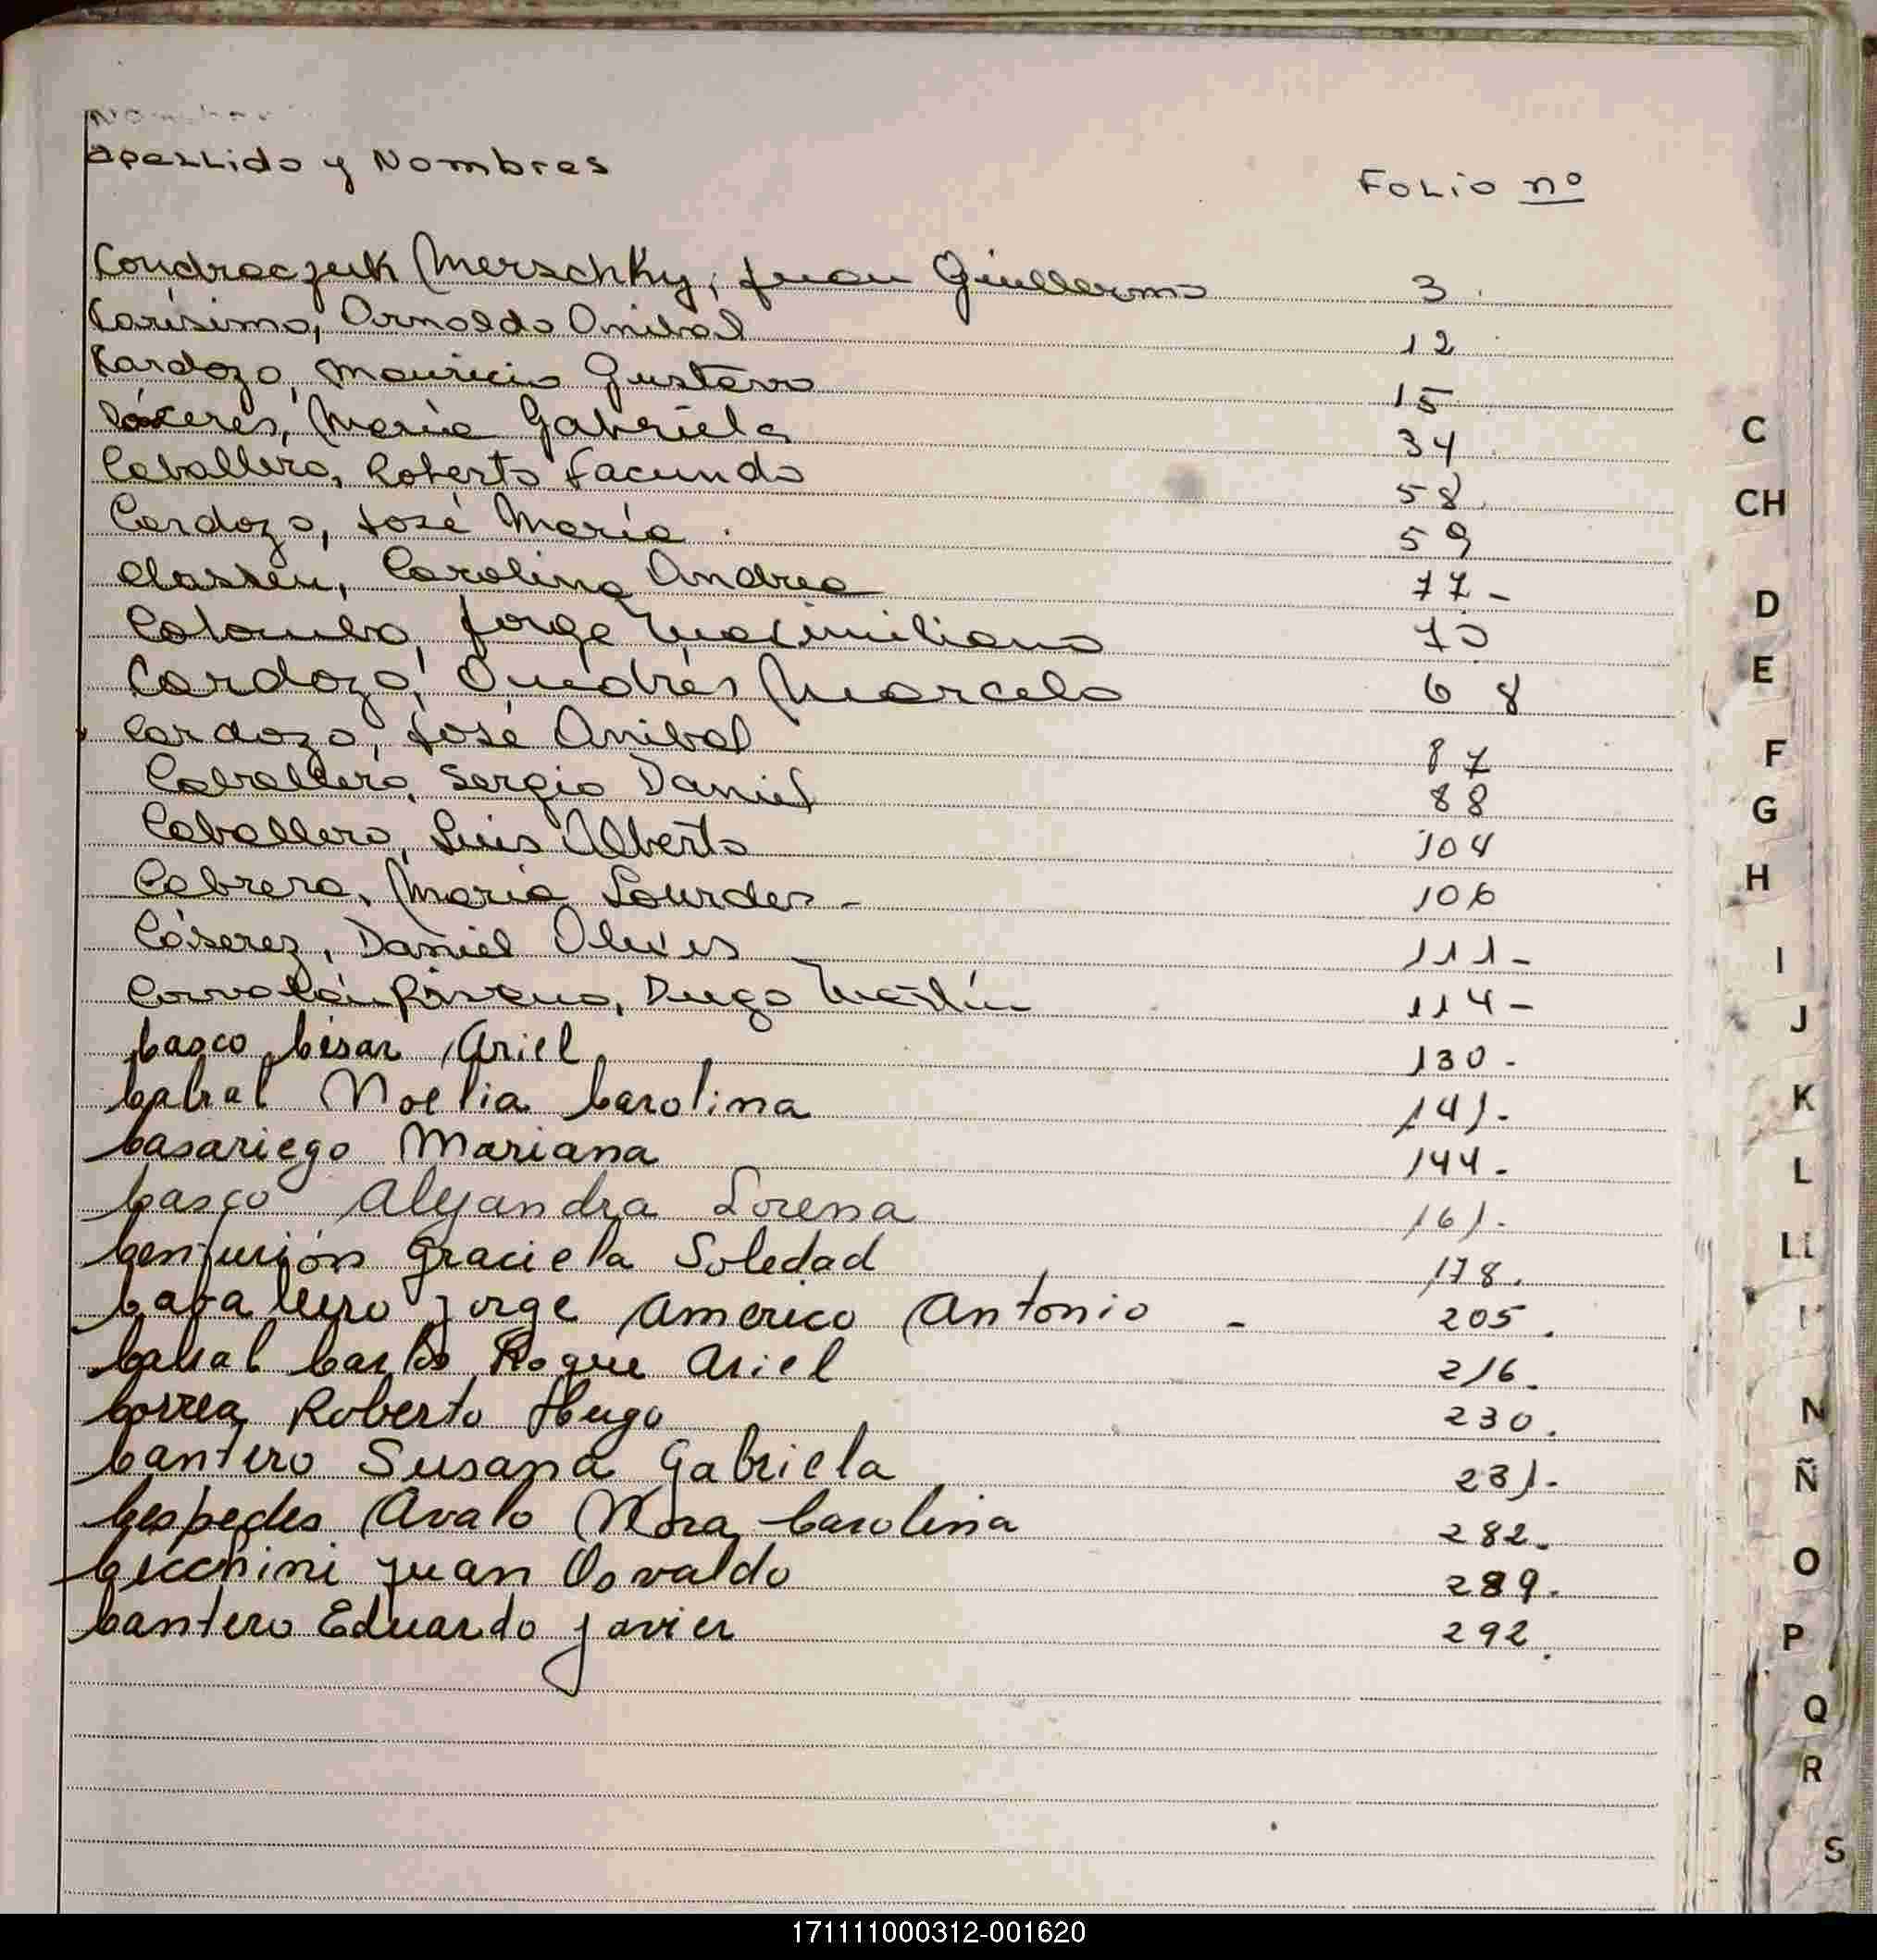 Apellido y Nombres
Folio nº
Condraczuk Merschky, Juan Guillermo 3
Carísimo, Arnoldo Anibal 12
Cardozo, Mauricio Gustavo 15
Cáceres, María Gabriela 34
Caballero, Roberto Facundo 58
Cardozo, José María 59
Classen, Carolina Andrea 77-
Colombo, Jorge Maximiliano 70
Cardozo, Andrés Marcelo 68
Cardozo, José Anibal 87
Caballero, Sergio Daniel 88
Caballero, Luis Alberto 104
Cabrera, María Lourdes - 106
Cáserez, Daniel 111-
Corvalán Diego Martín 114-
Casco César Ariel 130-
Cabral Noelia Carolina 141-
Casariego Mariana 144-
Casco Alejandra Lorena 161-
Centurión Graciela Soledad 178.
Caballero Jorge Americo Antonio - 205.
Cabral Carlos Roque Ariel 216.
Correa Roberto Hugo 230.
Cantero Susana Gabriela 231-
Cespedes Avalo Nora Carolina 282.
Cecchini Juan Osvaldo 289.
Cantero Eduardo Javier 292.
C
CH
D
E
F
G
H
I
J
K
L
LL
N
Ñ
O
P
Q
R
S
171111000312-001620